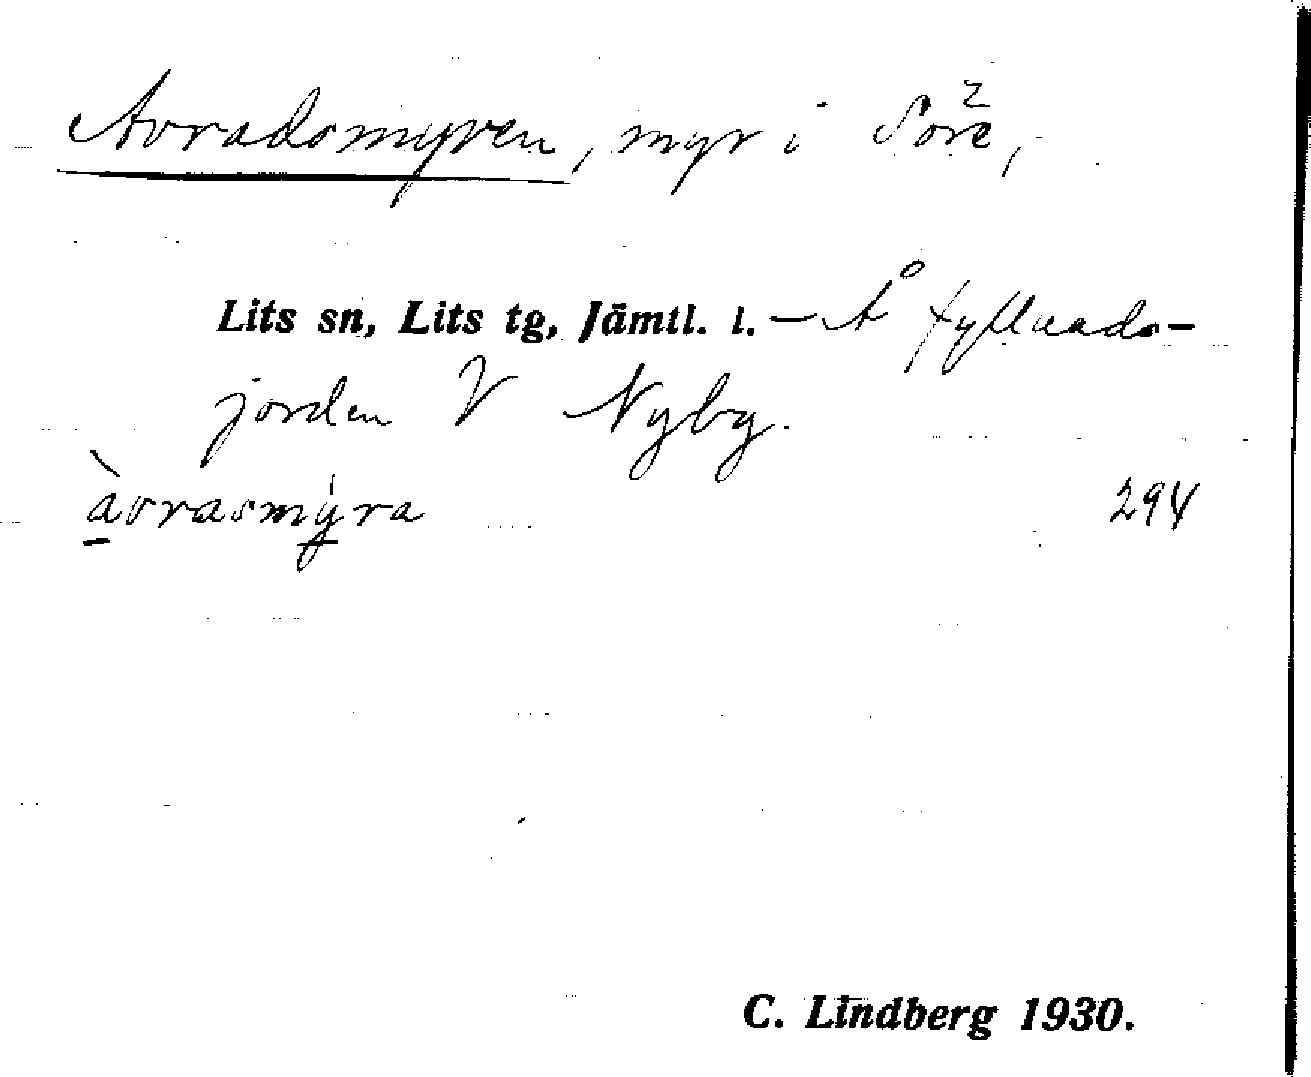 Avradsmyren, myr i Söre,
Lits sn, Lits tg, Jämtl. l. – Å fyllnads-
jorden V Nyby.
àvrasmy̍ra
294
C. Lindberg 1930.